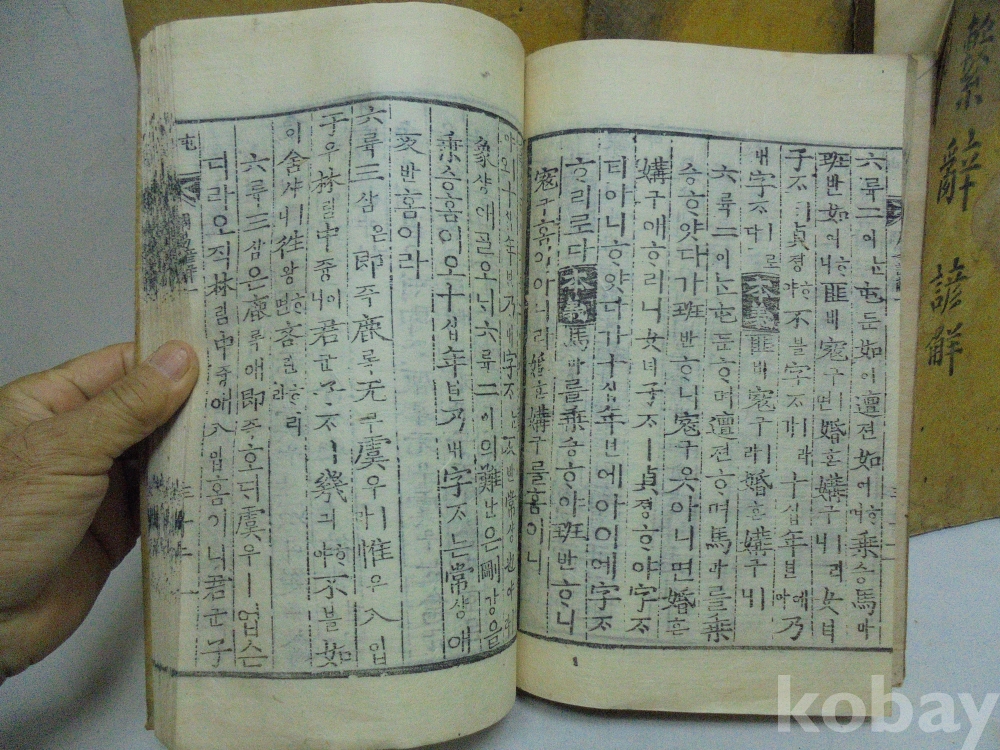 六륙二이는屯둔如여邅젼如여ᄒᆞ며乘승馬마
班반如여ᄒᆞ니匪비寇구ㅣ면婚혼媾구ㅣ니女녀
子ᄌᆞㅣ貞졍ᄒᆞ야不블字ᄌᆞㅣ라가十십年년에乃
내字ᄌᆞㅣ로다
本義匪비寇구ㅣ라婚혼媾구ㅣ니
六륙二이는屯둔ᄒᆞ며邅젼ᄒᆞ며馬마를乘
승ᄒᆞ얏다가班반ᄒᆞ니寇구옷아니면婚혼
媾구애ᄒᆞ리니女녀子ᄌᆞㅣ貞졍ᄒᆞ야字ᄌᆞ
티아니ᄒᆞ얏다가十십年년에아이에字ᄌᆞ
ᄒᆞ리로다本義馬마를乘승ᄒᆞ야班반ᄒᆞ니
寇구홈이아니라婚혼媾구를홈이니
象샹애ᄀᆞᆯ오ᄃᆡ六륙二이의難난은剛강을
乘승홈이오十십年년乃내字ᄌᆞ는常샹애
反반홈이라
六륙三삼은即즉鹿록无무虞우ㅣ라惟유入입
于우林림中듕이니君군子ᄌᆞㅣ幾긔ᄒᆞ야不블如
여舍샤ㅣ니往왕ᄒᆞ면吝린ᄒᆞ리라
六륙三삼은鹿록애即즉호ᄃᆡ虞우ㅣ업슨
디라오직林림中듕애入입홈이니君군子
屯
繫辭諺解
kobay